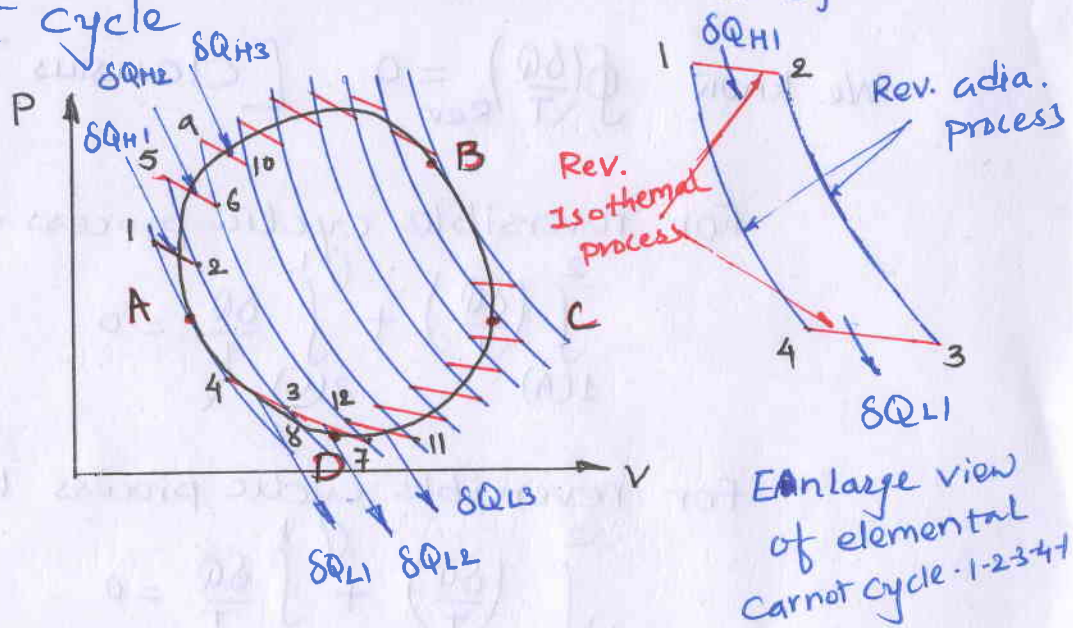 Cycle
δQH3
δQH2
δQH1
P
5
9
10
6
1
2
A
B
C
4
3
8
12
D
7
11
V
δQL3
δQL1 δQL2
δQH1
1
2
Rev. adia.
process
Rev.
Isothemal
process
4
3
δQL1
Enlarge view
of elemental
Carnot Cycle.1-2-3-4-1